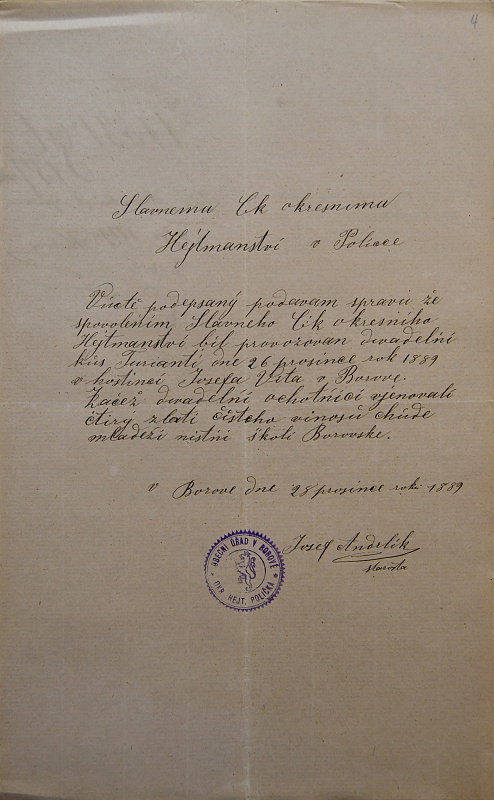 4
Slavnemu Ck okresnimu
Hejtmanství v Policce
Vúctě podepsaný podavam spravu že
spovolením Slavneho Ck okresního
Hejtmanství bil provozovan divadelní
kus Furianti dne 26 prosince rok 1889
v hostinci Josefa Víta v Borove.
Začež divadelní ochotníci vjenovali
čtiry zlatí čistcho vinosu chude
mladeži místní školi Borovske.
v Borove dne 28 prosince roku 1889
Josef Andrlík
starosta
OBECNÍ ÚŘAD V BOROVÉ
OKR. HEJT. POLIČKA